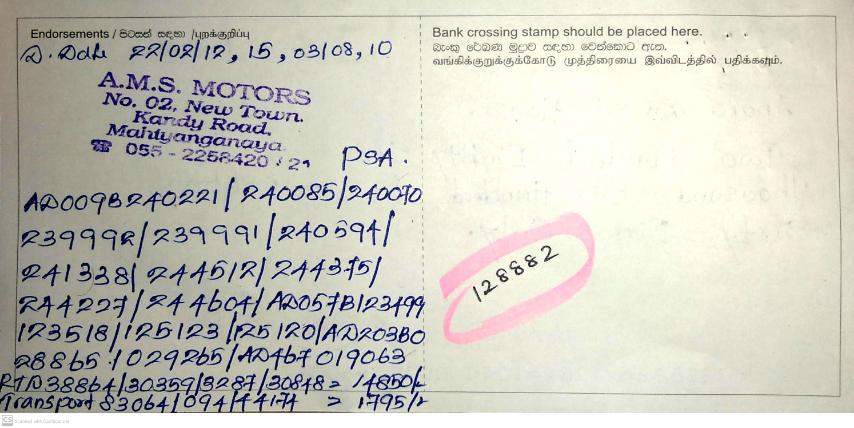 Endorsements / පිටසන් සඳහා /புறக்குறிப்பு
D. Date 22/02/12, 15, 03/08, 10
A.M.S. MOTORS
No. 02, New Town.
Kandy Road,
Mahiyanganaya
☎ 055 - 2258420 / 21
PSA.
AD009B240221/240085/240070
239992/239991/240594/
241338/244512/244375/
244227/244604/AD057B123499
123518/125123/125120/AD203B0
28865/029265/AD467019063
RTD38864/30359/3287/30848= 14850/-
Transport 83064/094/44174 = 1795/-
Bank crossing stamp should be placed here.
බැංකු රේඛණ මුද්‍රාව සඳහා වෙන්කොට ඇත.
வங்கிக்குறுக்குக்கோடு முத்திரையை இவ்விடத்தில் பதிக்கவும்.
128882
Scanned with CamScanner